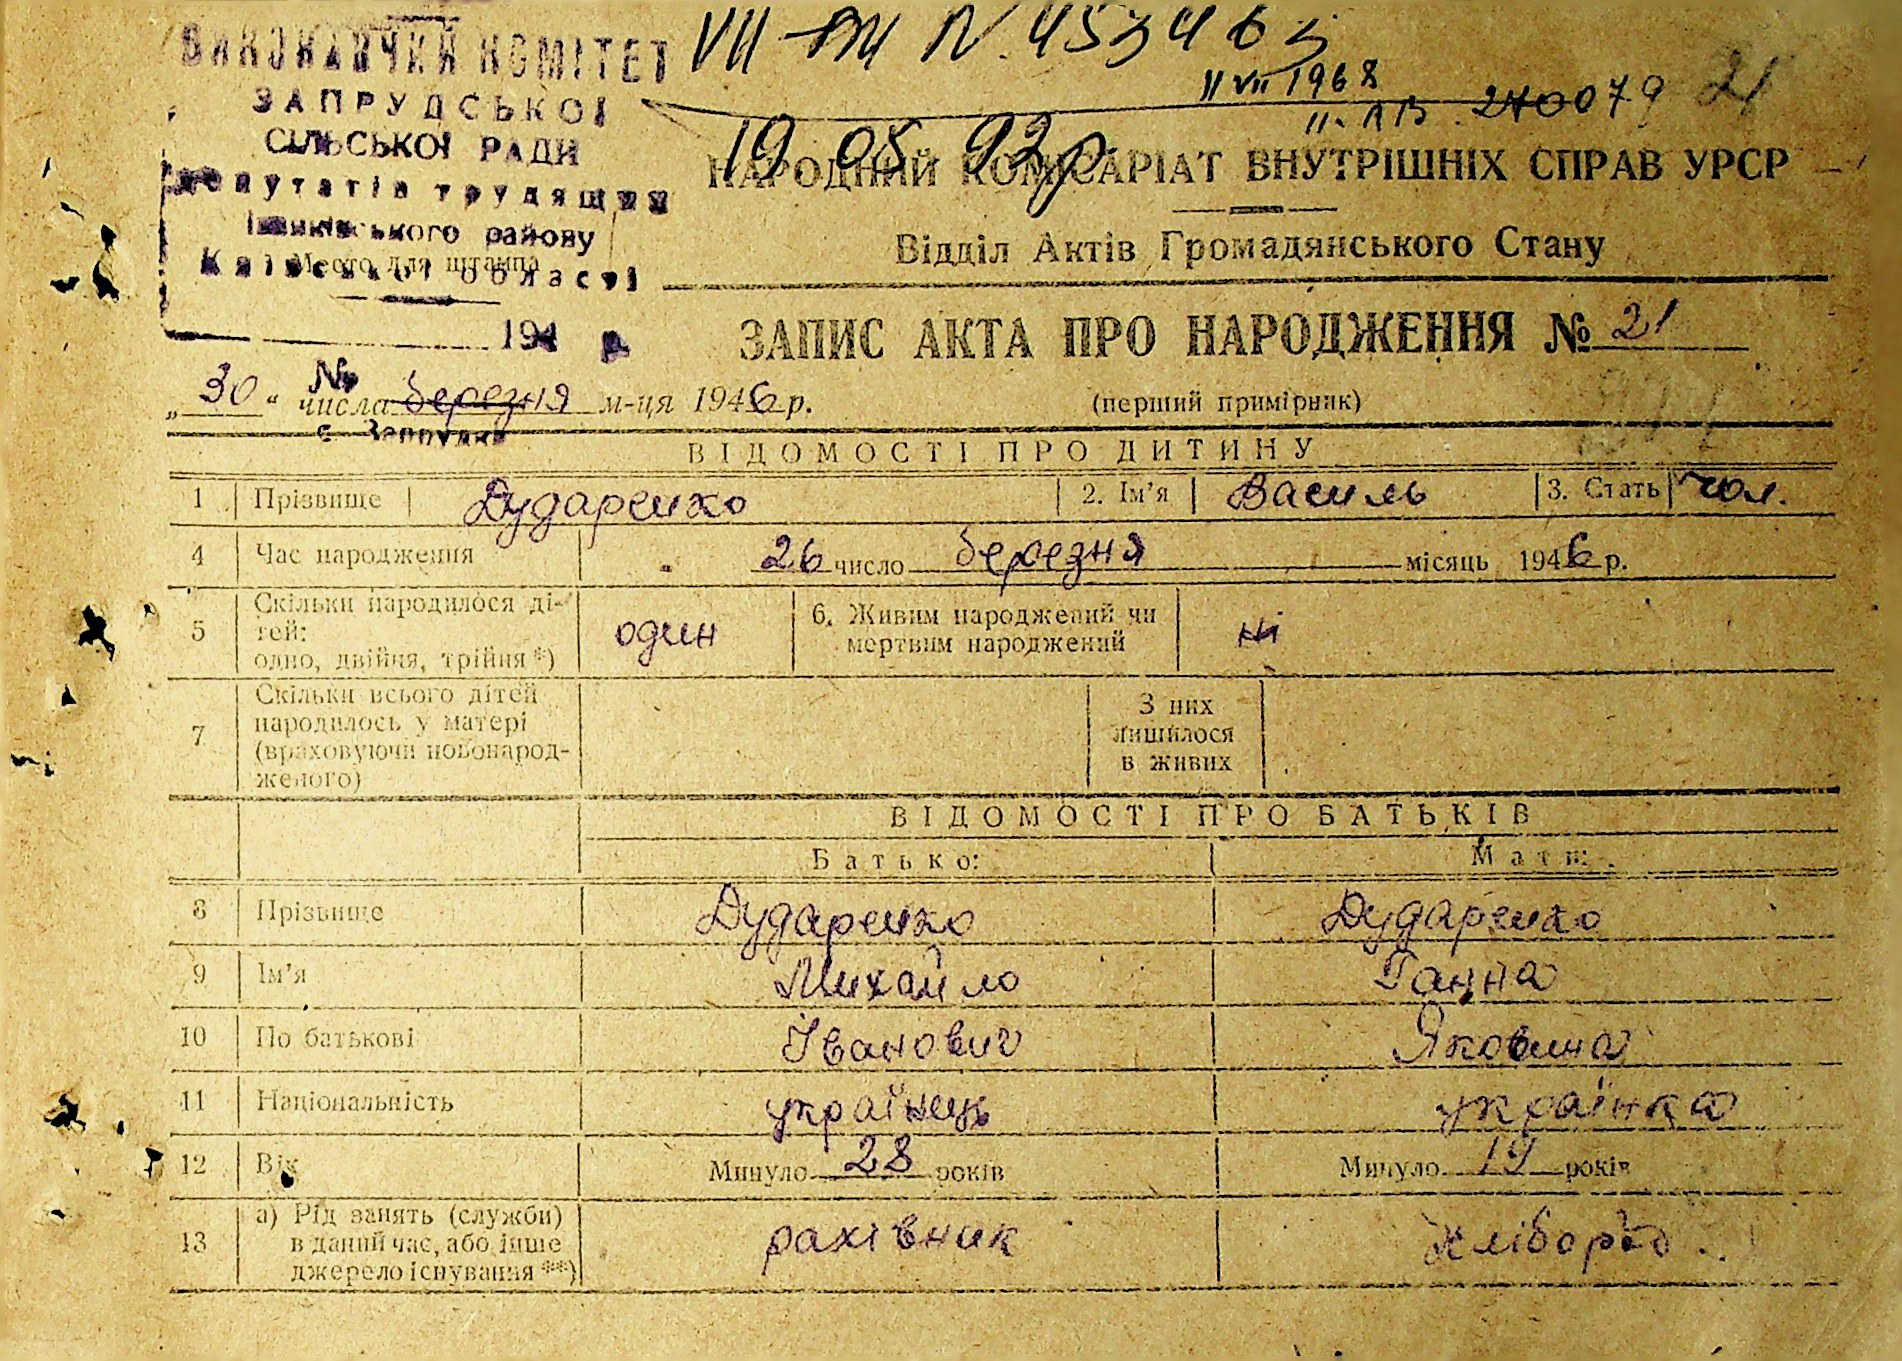 ВИКОНАВЧИЙ КОМІТЕТ
ЗАПРУДСЬКОЇ
СІЛЬСЬКОЇ РАДИ
депутатів трудящих
Іванківського району
Київської області
Место для штампа
194 р.
№
с. Запрудка
VII N. 453463
11 VII 1968
II-АВ 270079
21
19 05 92р
НАРОДНИЙ КОМІСАРІАТ ВНУТРІШНІХ СПРАВ УРСР
Відділ Актів Громадянського Стану
ЗАПИС АКТА ПРО НАРОДЖЕННЯ № 21
„30“ числа березня м-ця 1946 р.
(перший примірник)
ВІДОМОСТІ ПРО ДИТИНУ
1 Прізвище Дударенко 2. Ім’я Василь 3. Стать чол.
4 Час народження 26 число березня місяць 1946 р.
5 Скільки народилося ді-
тей:
одно, двійня, трійня *) один 6. Живим народжений чи
мертвим народжений ні
7 Скільки всього дітей
народилось у матері
(враховуючи новонарод-
женого) З них
лишилося
в живих
ВІДОМОСТІ ПРО БАТЬКІВ
Батько: Мати:
8 Прізвище Дударенко Дударенко
9 Ім’я Михайло Ганна
10 По батькові Іванович Яковина
11 Національність українець українка
12 Вік Минуло 28 років Минуло 19 років
13 а) Рід занять (служби)
в даний час, або інше
джерело існування **) рахівник хлібороб